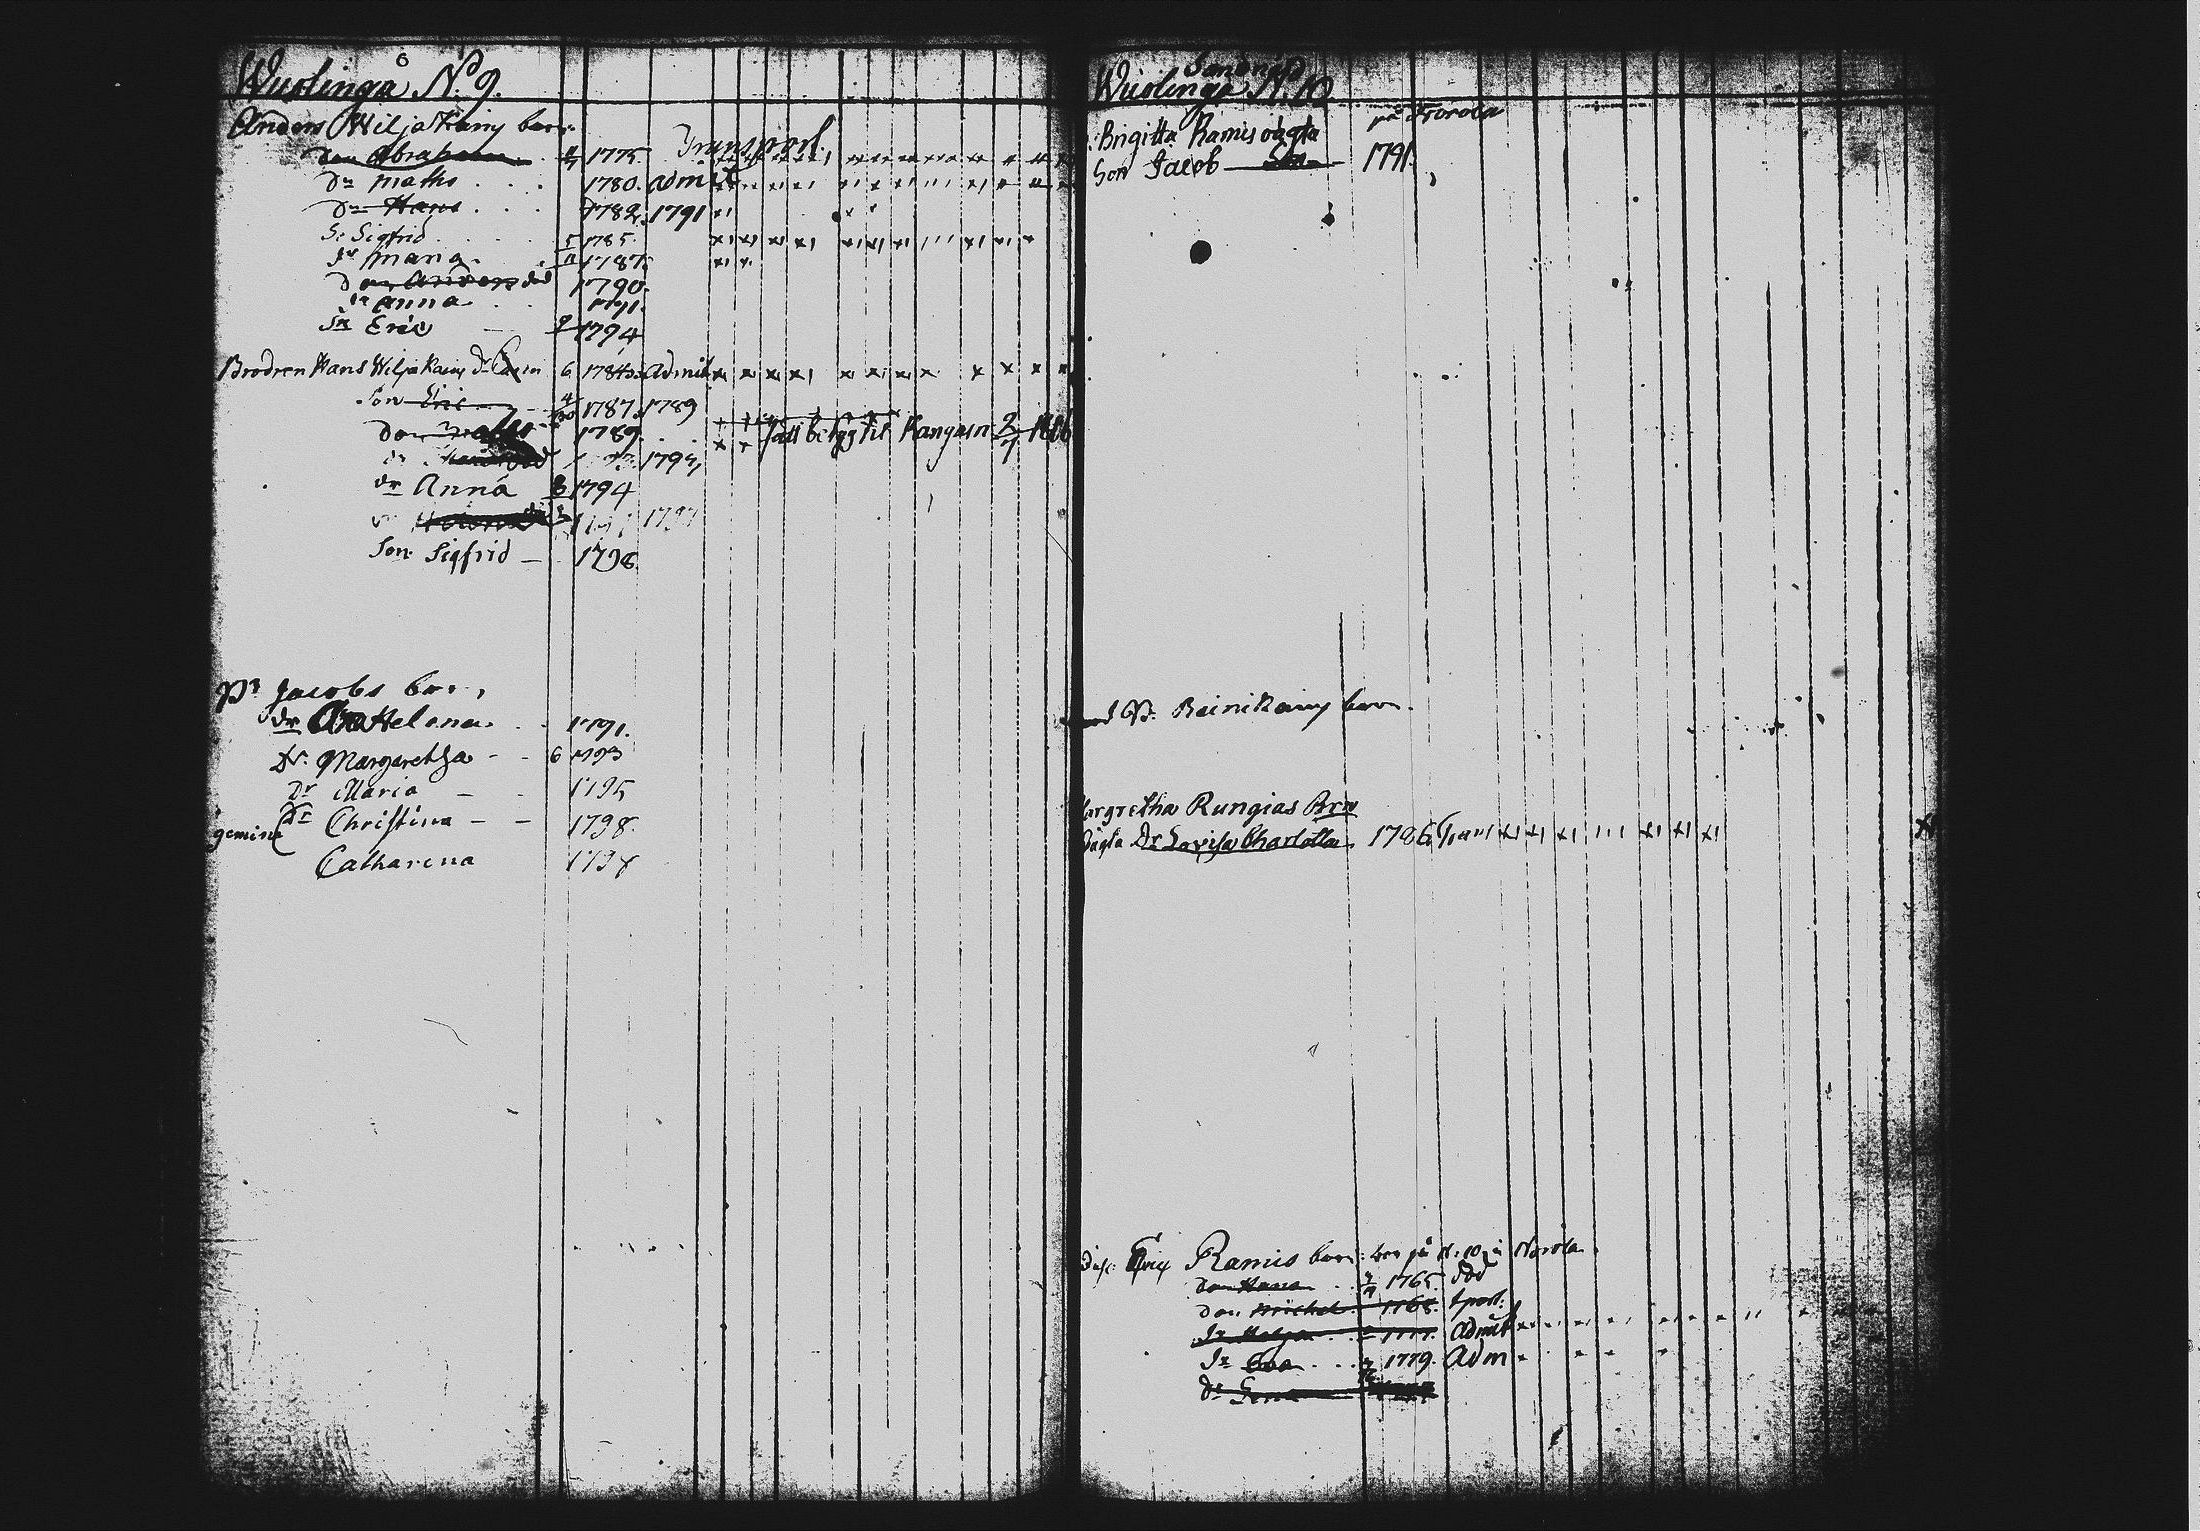 Wuolinga No 9.
Anders Wiljakains barn
Son Abraham 1775 Transport
Dn Maths 1780. admit
Dn Hans 1782 1791
Sn Sigfrid 5 1785.
Dr Maria 1787.
Son Anders död 1790.
Dr Anna 1791.
Sn Eric 9 1794
Brodren Hans Wiljakains Dr 6 1784 admit
Son Eric 1787. 1789
Son 1789. till Kangasn 2/7 1806
1794
dr Anna 8 1794
Helena 1797
Son Sigfrid 1798.
Jacobs barn,
dr Helena 1791.
Dr Margaretha 6 1793
Dr Maria 1795
gemine Dr Christina 1798.
Catharina 1798
Wuolinga N. 10
Brigitta Ramis oägta på Norola
Son Jacob 1791.
Reinikains barn.
Margretha Rungias Brn
oägta Dr Lovisa Charlotta 1786
Eric Ramis barn: bor på N: 10 i Norola
Son Hans 1765. död
Son Michel 1768. tport:
Dr Helga 1777. admit
Dr Eva 1779. Adm
Dr